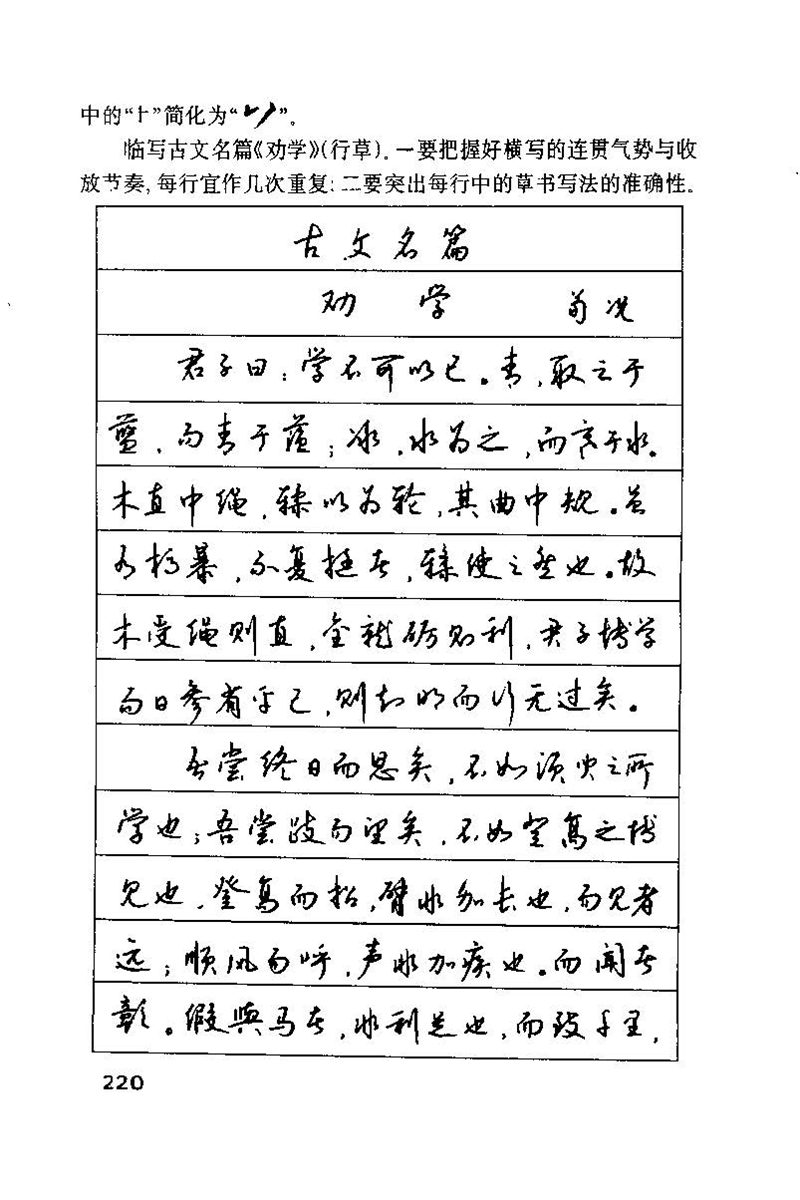 中的“丨”简化为“”。
临写古文名篇《劝学》(行草)。一要把握好横写的连贯气势与收
放节奏,每行宜作几次重复;二要突出每行中的草书写法的准确性。
古文名篇
劝 学 荀况
君子曰:学不可以已。青,取之于
蓝,而青于蓝;冰,水为之,而寒于水。
木直中绳,𫐓以为轮,其曲中规。虽
有槁暴,不复挺者,𫐓使之然也。故
木受绳则直,金就砺则利,君子博学
而日参省乎己,则知明而行无过矣。
吾尝终日而思矣,不如须臾之所
学也;吾尝跂而望矣,不如登高之博
见也,登高而招,臂非加长也,而见者
远;顺风而呼,声非加疾也。而闻者
彰。假舆马者,非利足也,而致千里,
220